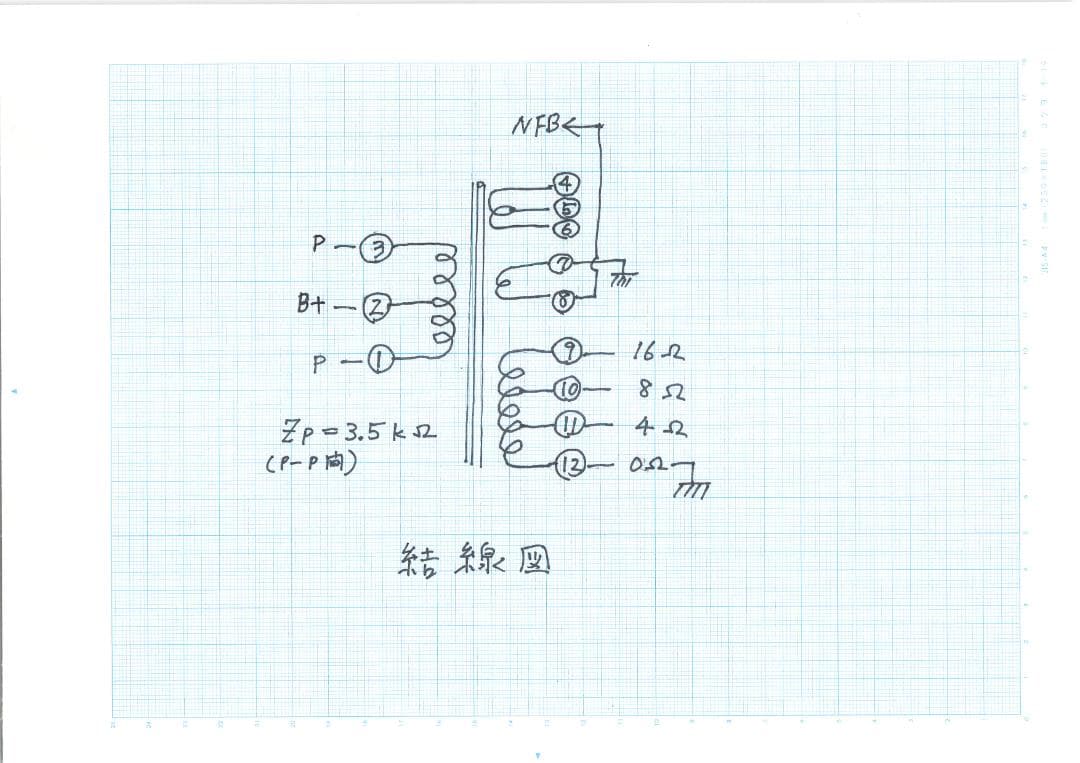 NFB
④
⑤
⑥
P ③
⑦
B+ ②
⑧
P ①
⑨ 16Ω
⑩ 8Ω
Zp=3.5kΩ
⑪ 4Ω
(P-P間)
⑫ 0Ω
結線図